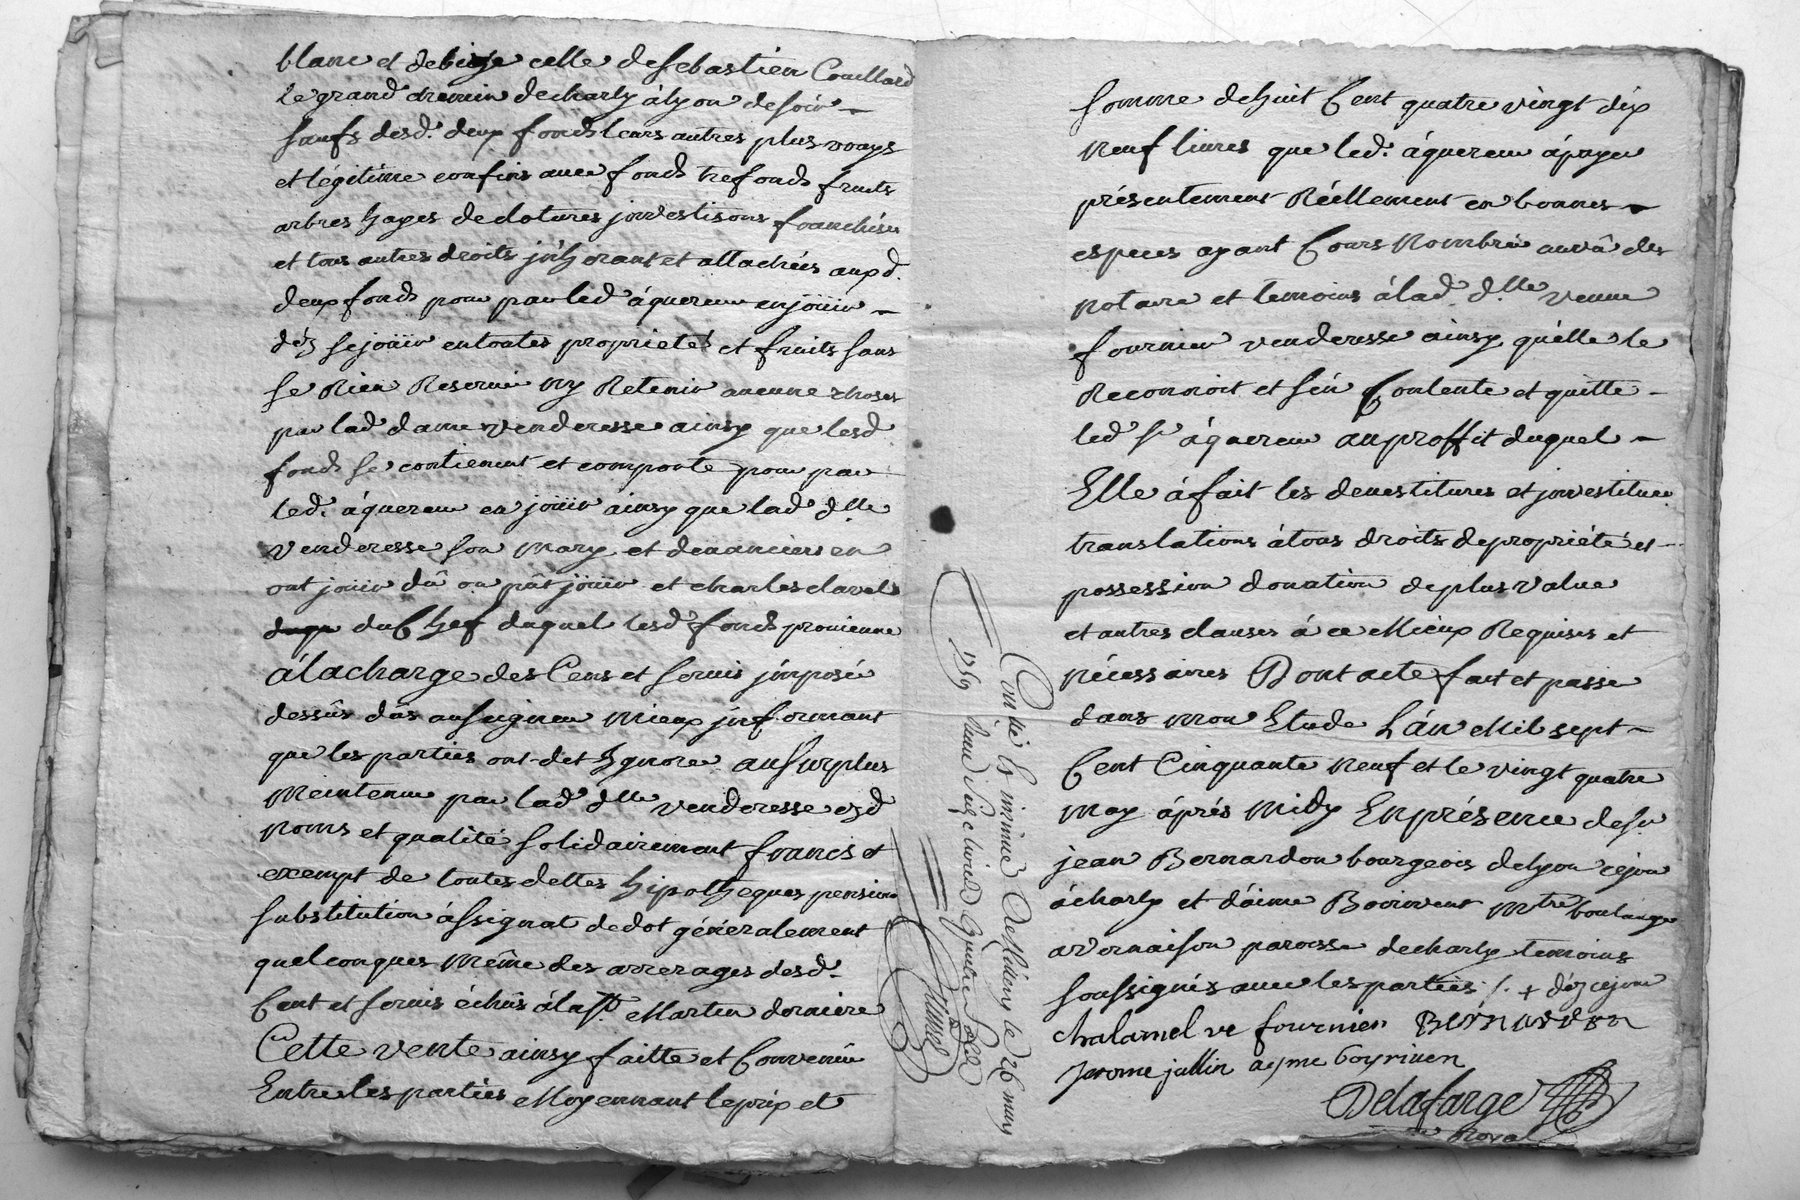 blanc et debize celle de Sebastien Couillard
le grand chemin de charly à lyon de soir
saufs desd. deux fonds leurs autres plus vrays
et légitime confins avec fonds trefonds fruits
arbres hayes de clotures jnvestisons franchises
et tous autres droits jnhérant et attachées aux d.
deux fonds pour par led. àquereur en joüir
déz se joüir en toutes proprietés et fruits sans
se Rien Reserver ny Retenir aucune choses
par lad. dame venderesse ainsy que lesd
fonds se contienent et comporte pour par
led. àquereur en joüir ainsy que lad. dlle
venderesse son mary et devanciers en
ont joüir dû ou pût joüir et charles clavel
du Chef duquel lesd. fonds provienne
à la charge des Cens et servis jmposé
dessûs dûs au seigneur mieux jnformant
que les parties ont dit Ygnorer au surplus
Meintenue par lad. dlle venderesse esd
noms et qualité solidairement francs et
exempt de toutes dettes hipotheques pension
substitution àssignat de dot généralement
quelconques même des arrerages desd.
Cent et servis échûs à la St. Martin derniere
Cette vente ainsy faitte et Convenüe
Entre les parties Moyennant le prix et
Controllé la minute
1759
somme de huit Cent quatre vingt dix
neuf livres que led. àquereur à payer
présentement Réellement en bonnes
especes ayant Cours nombré au vû des
notaire et temoins à lad. dlle veuve
fournier venderesse ainsy qu'elle le
Reconnoit et s'en Contente et quitte
led. sr àquereur au proffit duquel
Elle à fait les devestitures et jnvestiture
translations à tous droits de propriété et
possession donation de plus value
et autres clauses à ce Mieux Requises et
nécessaires Dont acte fait et passé
dans mon Etude L'an Mil sept
Cent Cinquante neuf et le vingt quatre
may àprés Midy En présence de sr
jean Bernardon bourgeois de lyon
à charly et d'aime Boirivent Mtre boulanger
a vernaison paroisse de charly temoins
soussignés avec les parties /. +
chalamel ve fournier Bernardon
Jerome jullin ayme boyriven
Delafarge
no. Royal